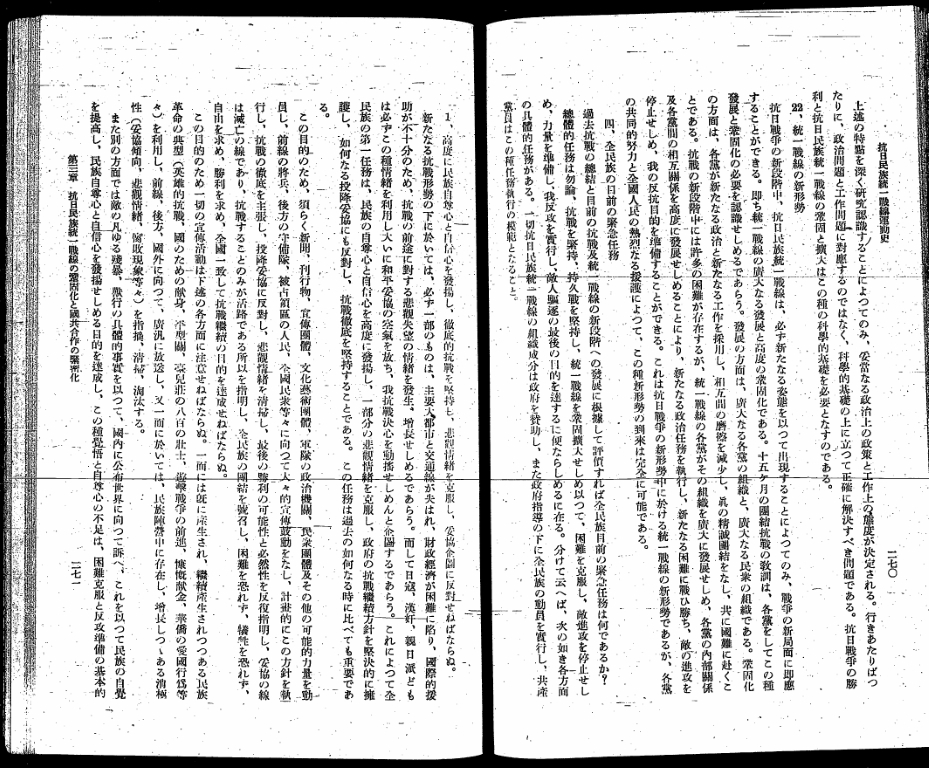 抗日民族統一戰線運動史
一七〇
上述の特點を深く研究認識することによつてのみ、妥當なる政治上の政策と工作上の態度が決定される。行きあたりばつ
たりに、政治問題と工作問題に對應するのではなく、科學的基礎の上に立つて正確に解決すべき問題である。抗日戰爭の勝
利と抗日民族統一戰線の鞏固と擴大はこの種の科學的基礎を必要となすのである。
22、統一戰線の新形勢
抗日戰爭の新段階中、抗日民族統一戰線は、必ず新たなる姿態を以つて出現することによつてのみ、戰爭の新局面に卽應
することができる。卽ち統一戰線の廣大なる發展と高度の鞏固化である。十五ヶ月の團結抗戰の敎訓は、各黨をしてこの種
發展と鞏固化の必要を認識せしめるであらう。發展の方面は、廣大なる各黨の組織と、廣大なる民衆の組織である。鞏固化
の方面は、各黨が新たなる政治と新たなる工作を採用し、相互間の磨擦を減少し、眞の精誠團結をなし、共に國難に赴くこ
とである。抗戰の新段階中には許多の困難が存在するが、統一戰線の各黨がその組織を廣大に發展せしめ、各黨の內部關係
及各黨間の相互關係を高度に發展せしめることにより、新たなる政治任務を執行し、新たなる困難に戰ひ勝ち、敵の進攻を
停止せしめ、我の反抗目的を準備することができる。これは抗日戰爭の新形勢中に於ける統一戰線の新形勢であるが、各黨
の共同的努力と全國人民の熱烈なる援護によつて、この種新形勢の到來は完全に可能である。
四、全民族の目前の緊急任務
過去抗戰の總結と目前の抗戰及統一戰線の新段階への發展に根據して評價すれば全民族目前の緊急任務は何であるか?
總體的任務は勿論、抗戰を堅持し、持久戰を堅持し、統一戰線を鞏固擴大せしめ以つて、困難を克服し、敵進攻を停止せし
め、力量を準備し、我反攻を實行し、敵人驅逐の最後の目的を達するに便ならしめるに在る。分けて云へば、次の如き各方面
の具體的任務がある。一切抗日民族統一戰線の組織成分は政府を贊助し、また政府指導の下に全民族の動員を實行し、共產
黨員はこの種任務執行の模範となること。
1、高度に民族自尊心と自信心を發揚し、徹底的抗戰を堅持し、悲觀情緒を克服し、妥協企圖に反對せねばならぬ。
新たなる抗戰形勢の下に於いては、必ず一部のものは、主要大都市と交通線が失はれ、財政經濟が困難に陷り、國際的援
助が不十分のため、抗戰の前途に對する悲觀失望の情緒を發生、增長せしめるであらう。而して日寇、漢奸、親日派ども
は必ずこの種情緒を利用し大いに和平妥協の空氣を放ち、我抗戰決心を動搖せしめんと企圖するであらう。これによつて全
民族の第一任務は、民族の自尊心と自信心を高度に發揚し、一部分の悲觀情緒を克服し、政府の抗戰繼續方針を堅決的に擁
護し、如何なる投降妥協にも反對し、抗戰徹底を堅持することである。この任務は過去の如何なる時に比べても重要であ
る。
この目的のため、須らく新聞、刊行物、宣傳團體、文化藝術團體、軍隊の政治機關、民衆團體及その他の可能的力量を動
員し、前線の將兵、後方の守備隊、被占領區の人民、全國民衆等々に向つて大々的宣傳鼓動をなし、計畫的にこの方針を執
行し、抗戰の徹底を主張し、投降妥協に反對し、悲觀情緒を淸掃し、最後の勝利の可能性と必然性を反復指明し、妥協の線
は滅亡の線であり、抗戰することのみが活路である所以を指明し、全民族の團結を號召し、困難を恐れず、犧牲を恐れず、
自由を求め、勝利を求め、全國一致して抗戰繼續の目的を達成せねばならぬ。
この目的のため一切の宣傳活動は下述の各方面に注意せねばならぬ。一面には旣に產生され、繼續產生されつつある民族
革命の典型(英雄的抗戰、國のための獻身、平型關、臺兒莊の八百の壯士、游擊戰爭の前進、慷慨獻金、華僑の愛國行爲等
々)を利用し、前線、後方、國外に向つて、廣汎に放送し、又一面に於いては、民族陣營中に存在し、增長しつゝある消極
性(妥協傾向、悲觀情緒、腐敗現象等々)を指摘、淸掃、淘汰する。
また別の方面では敵の凡ゆる殘暴、獸行の具體的事實を以つて、國內に公布世界に向つて訴へ、これを以つて民族の自覺
を提高し、民族自尊心と自信心を發揚せしめる目的を達成し、この種覺悟と自尊心の不足は、困難克服と反攻準備の基本的
第三章 抗日民族統一戰線の鞏固化と國共合作の緊密化
一七一